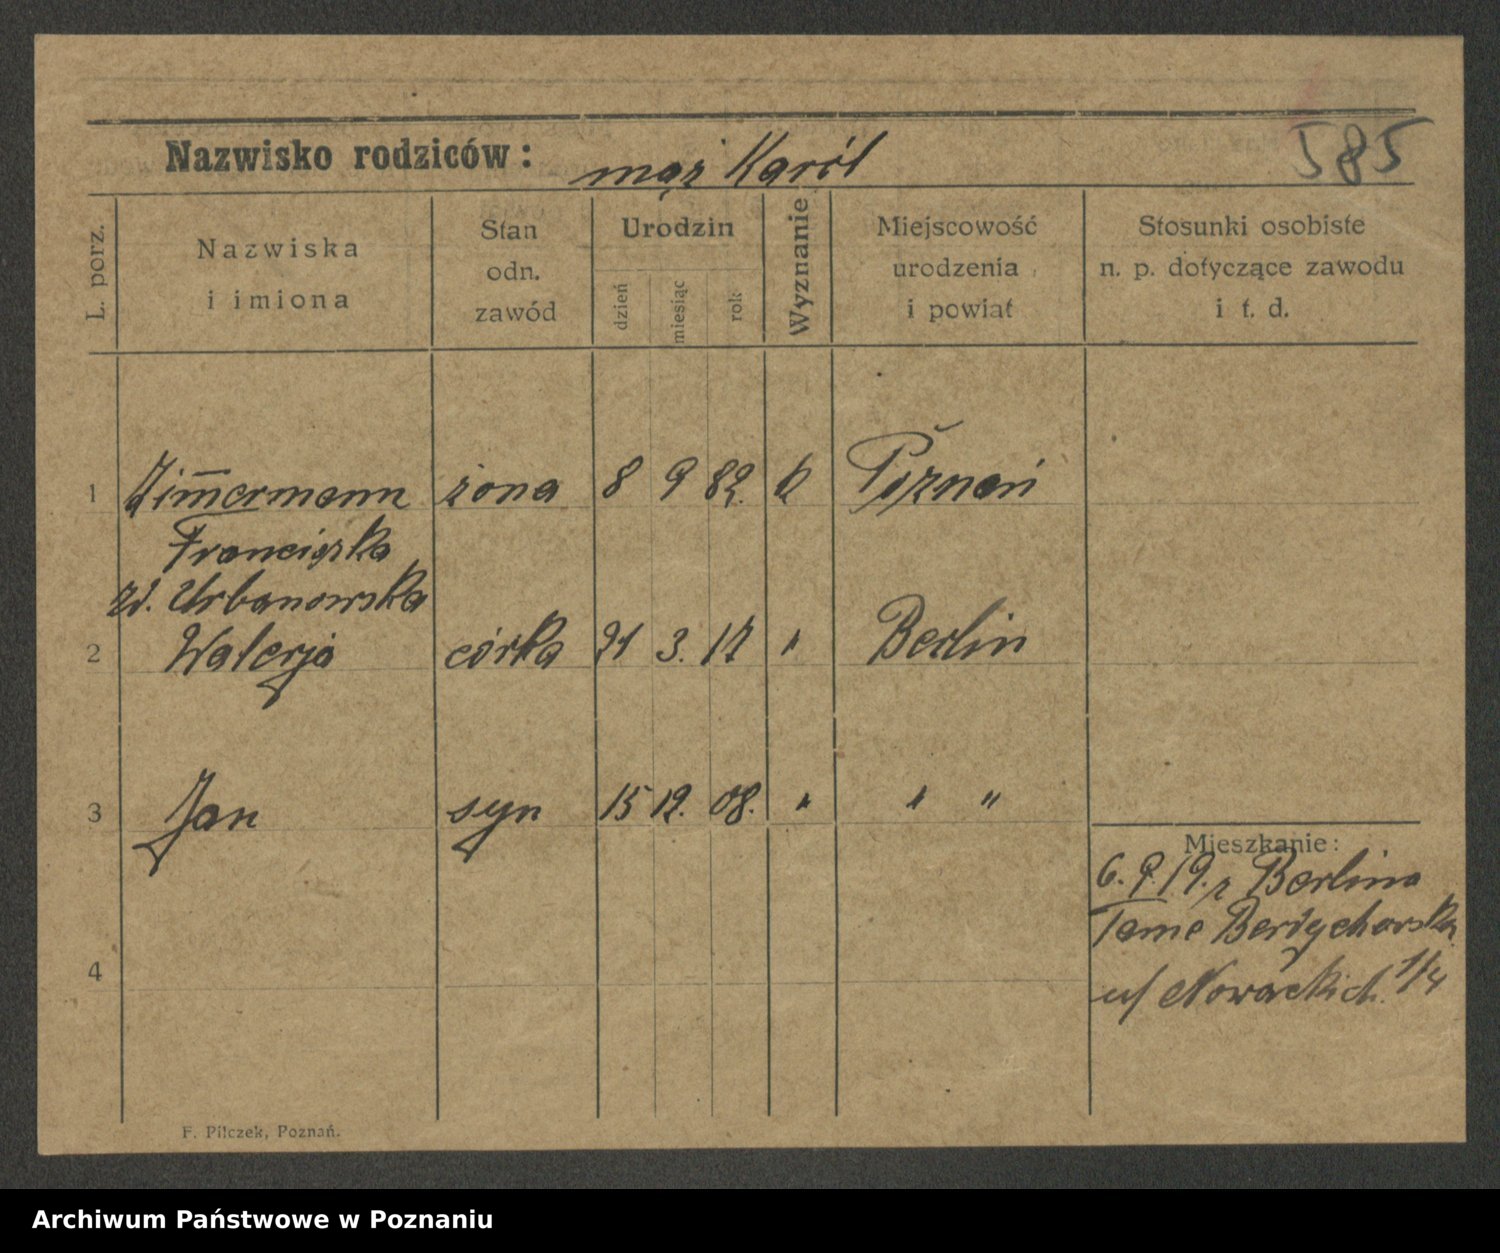 585
Nazwisko rodziców: mąż Karól
L. porz.
Nazwiska i imiona
Stan odn. zawód
Urodzin
dzień
miesiąc
rok
Wyznanie
Miejscowość urodzenia i powiat
Stosunki osobiste n. p. dotyczące zawodu i t. d.
1 Zim̅ermann żona 8 9 82. k Poznań
Franciszka
zd. Urbanowska
2 Walerja córka 21 3. 17 " Berlin
3 Jan syn 15 12. 08. " " "
Mieszkanie:
6. 9. 19. z Berlina
Tame Berdychowska
u/ Nowackich 1/4
4
F. Pilczek, Poznań.
Archiwum Państwowe w Poznaniu